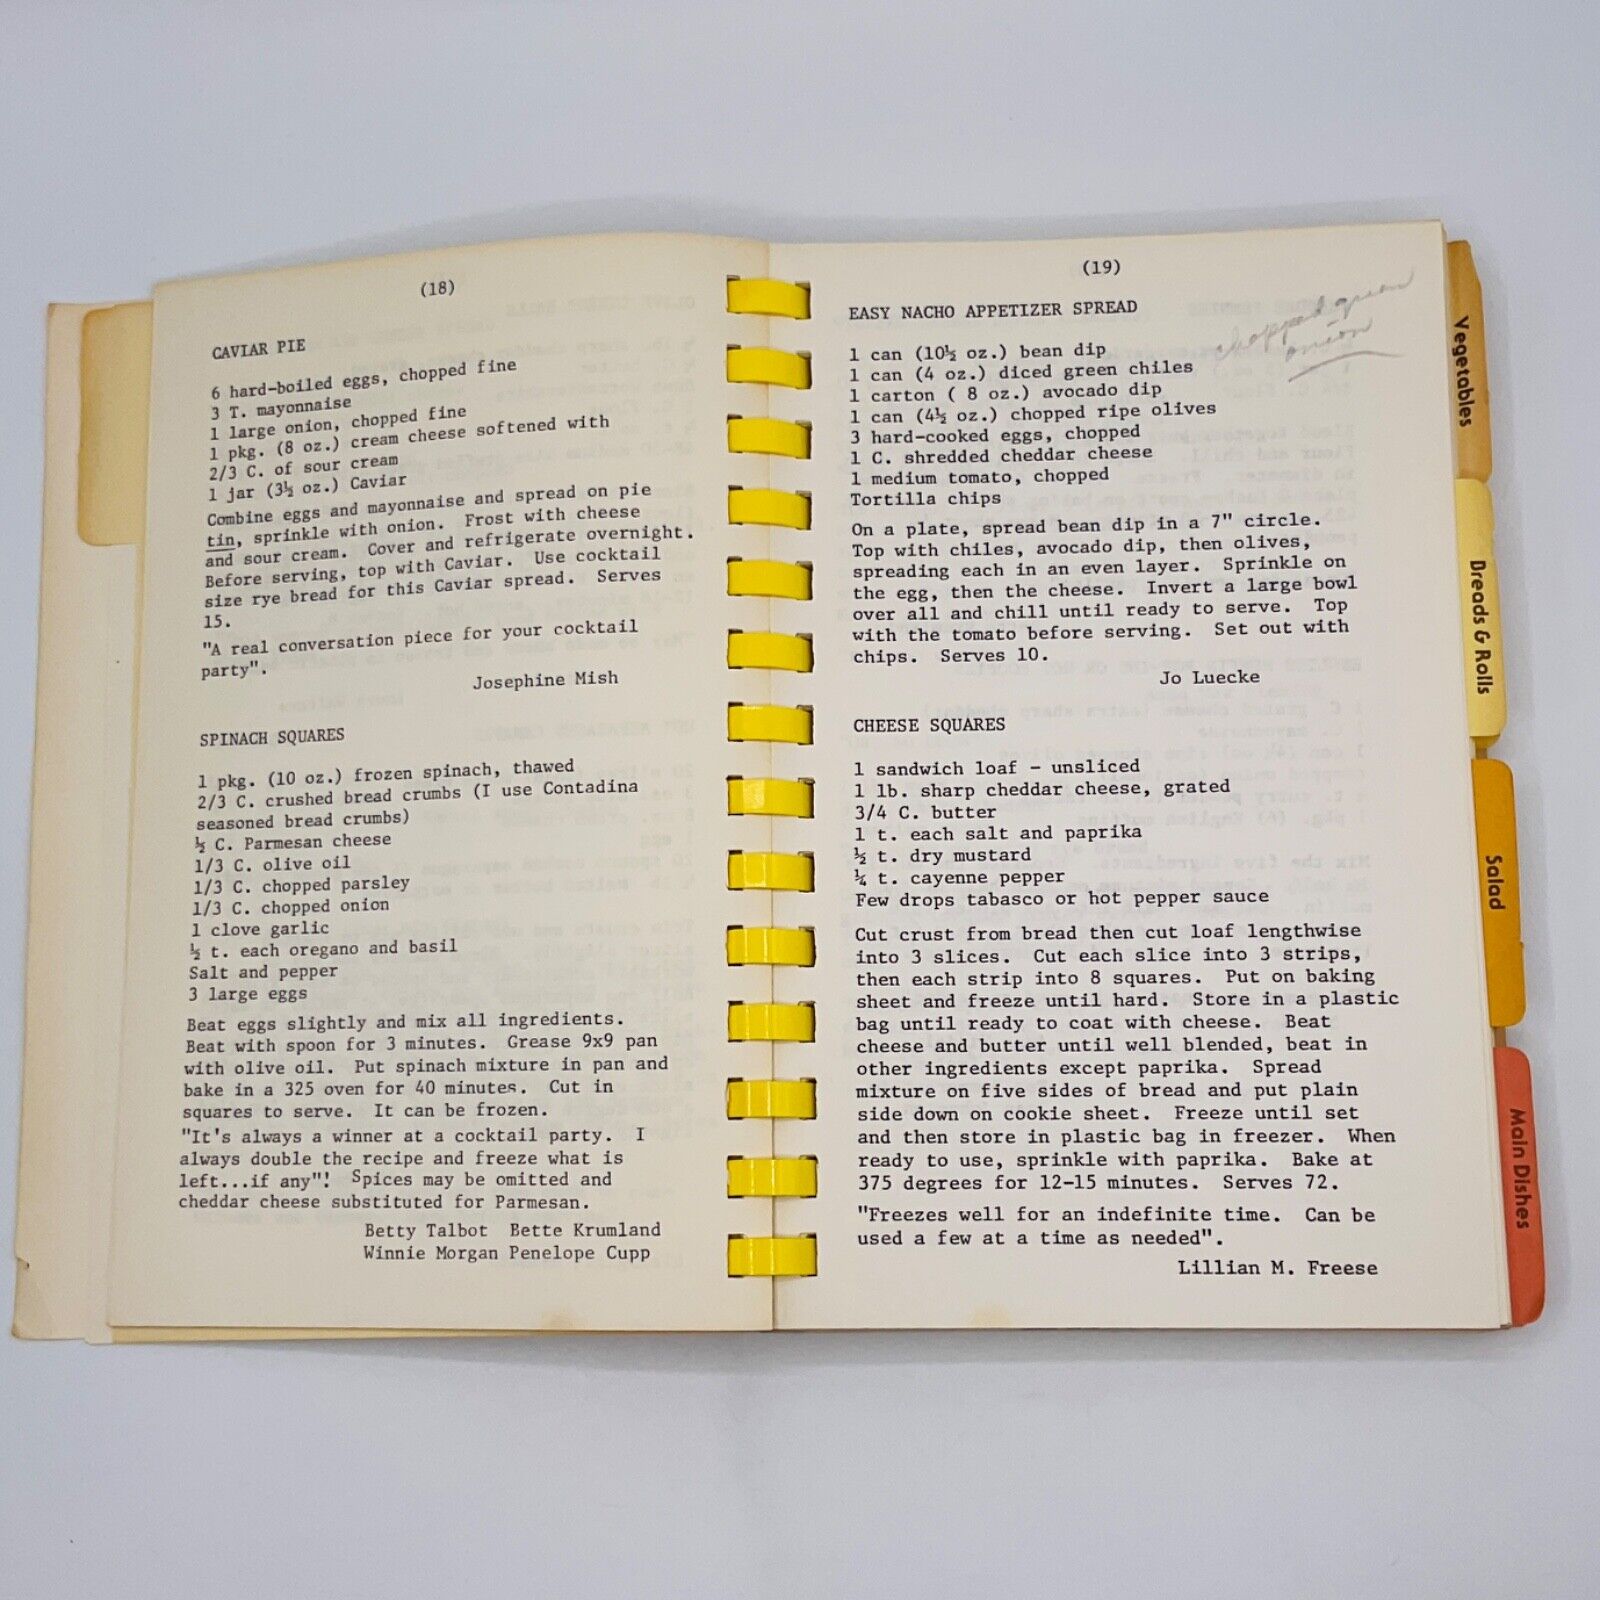 (18)
CAVIAR PIE
6 hard-boiled eggs, chopped fine
3 T. mayonnaise
1 large onion, chopped fine
1 pkg. (8 oz.) cream cheese softened with
2/3 C. of sour cream
1 jar (3½ oz.) Caviar
Combine eggs and mayonnaise and spread on pie
tin, sprinkle with onion. Frost with cheese
and sour cream. Cover and refrigerate overnight.
Before serving, top with Caviar. Use cocktail
size rye bread for this Caviar spread. Serves
15.
"A real conversation piece for your cocktail
party".
Josephine Mish
SPINACH SQUARES
1 pkg. (10 oz.) frozen spinach, thawed
2/3 C. crushed bread crumbs (I use Contadina
seasoned bread crumbs)
½ C. Parmesan cheese
1/3 C. olive oil
1/3 C. chopped parsley
1/3 C. chopped onion
1 clove garlic
½ t. each oregano and basil
Salt and pepper
3 large eggs
Beat eggs slightly and mix all ingredients.
Beat with spoon for 3 minutes. Grease 9x9 pan
with olive oil. Put spinach mixture in pan and
bake in a 325 oven for 40 minutes. Cut in
squares to serve. It can be frozen.
"It's always a winner at a cocktail party. I
always double the recipe and freeze what is
left...if any"! Spices may be omitted and
cheddar cheese substituted for Parmesan.
Betty Talbot Bette Krumland
Winnie Morgan Penelope Cupp
(19)
EASY NACHO APPETIZER SPREAD
chopped green
onion
1 can (10½ oz.) bean dip
1 can (4 oz.) diced green chiles
1 carton ( 8 oz.) avocado dip
1 can (4½ oz.) chopped ripe olives
3 hard-cooked eggs, chopped
1 C. shredded cheddar cheese
1 medium tomato, chopped
Tortilla chips
On a plate, spread bean dip in a 7" circle.
Top with chiles, avocado dip, then olives,
spreading each in an even layer. Sprinkle on
the egg, then the cheese. Invert a large bowl
over all and chill until ready to serve. Top
with the tomato before serving. Set out with
chips. Serves 10.
Jo Luecke
CHEESE SQUARES
1 sandwich loaf - unsliced
1 lb. sharp cheddar cheese, grated
3/4 C. butter
1 t. each salt and paprika
½ t. dry mustard
¼ t. cayenne pepper
Few drops tabasco or hot pepper sauce
Cut crust from bread then cut loaf lengthwise
into 3 slices. Cut each slice into 3 strips,
then each strip into 8 squares. Put on baking
sheet and freeze until hard. Store in a plastic
bag until ready to coat with cheese. Beat
cheese and butter until well blended, beat in
other ingredients except paprika. Spread
mixture on five sides of bread and put plain
side down on cookie sheet. Freeze until set
and then store in plastic bag in freezer. When
ready to use, sprinkle with paprika. Bake at
375 degrees for 12-15 minutes. Serves 72.
"Freezes well for an indefinite time. Can be
used a few at a time as needed".
Lillian M. Freese
Vegetables
Breads & Rolls
Salad
Main Dishes